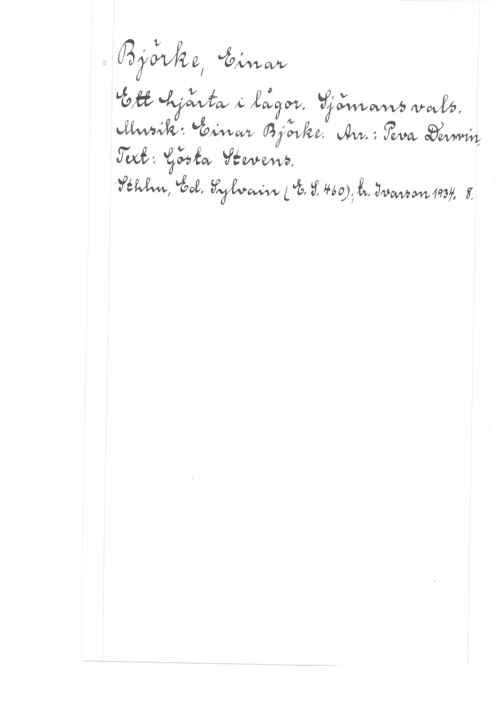 Björke, Einar
Ett hjärta i lågor. Sjömansvals.
Musik: Einar Björke. Arr.: Peva Derwin.
Text: Gösta Stevens.
Sthlm, Ed. Sylvain (E. S. 460), tr. Ivarson 1934. 8.